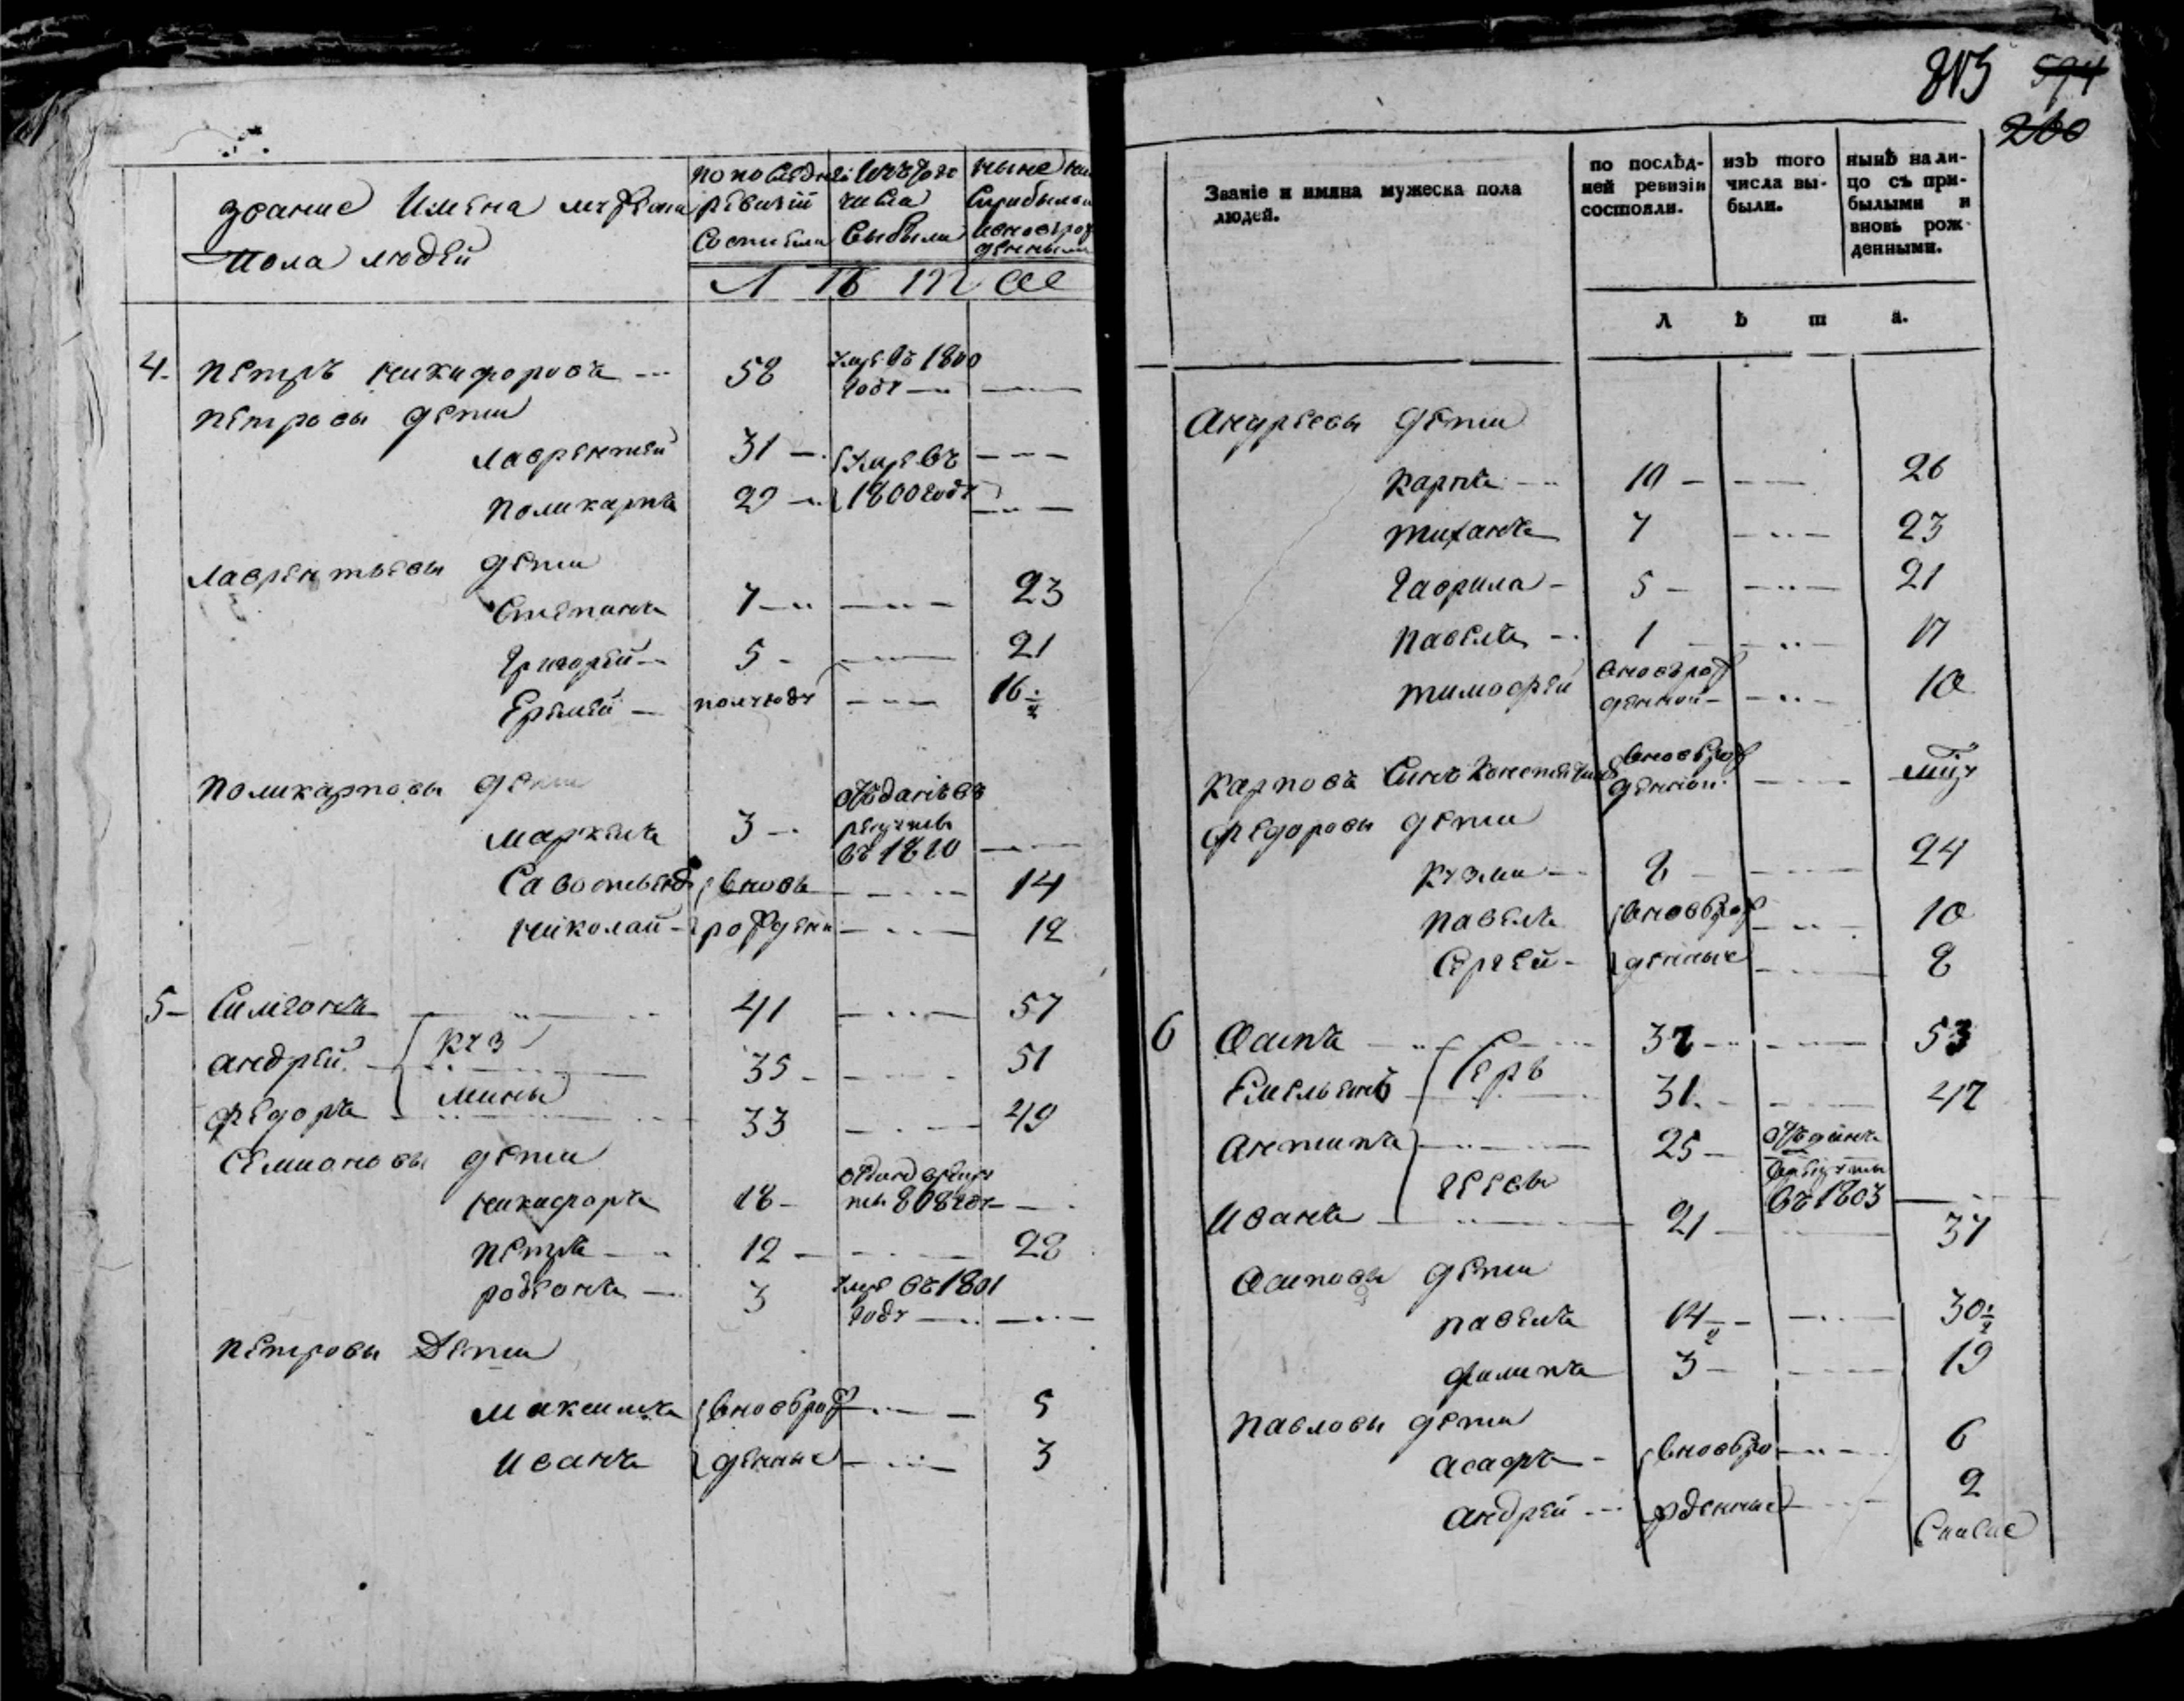 звание Имена мужеска
пола людей
по последней ревизии состояли
изъ того числа выбыли
ныне на лицо с прибылыми и вновь рожденными
Л ѣ т а
4. Петръ Никифоровъ --- 58 умре въ 1800 году
Петровы дети
Лаврентей 31 умре въ
Поликарпъ 29 1800 году
Лаврентьевы дети
Степанъ 7 23
Григорей 5 21
Еремей полугоду 16 ½
Поликарповы дети
Маркелъ 3 отданъ въ рекруты въ 1810
Савостьянъ вновь 14
Николай рожден 12
5 Симионъ 41 57
Андрей Куз 35 51
Федоръ мины 33 49
Семионовы дети
Никифоръ 18 отдан в рекруты 808 году
Петръ 12 28
Родионъ 3 умре въ 1801 году
Петровы Дети
Максимъ вновь рож 5
Иванъ денные 3
813 594
260
Званіе и имяна мужеска пола
людей.
по послѣд-
ней ревизіи
состояли.
изъ того
числа вы-
были.
нынѣ на ли-
цо съ при-
былыми и
вновь рож-
денными.
Л ѣ т а.
Андреевы дети
Карпъ 10 26
Тиханъ 7 23
Гаврила 5 21
Павелъ 1 17
Тимофей вновь рожденной 10
Карповъ Сынъ вновь рожденной
Федоровы дети
Кузма 8 24
Павелъ вновь рож 10
Сергей денные 8
6 Осипъ 37 53
Емельянъ Сер 31 47
Антипъ 25 отданъ в рекруты въ 1803
Иванъ геевы 21 37
Осиповы дети
Павелъ 14 ½ 30 ½
Филипъ 3 19
Павловы дети
Асафъ вновь ро 6
Андрей жденные 2